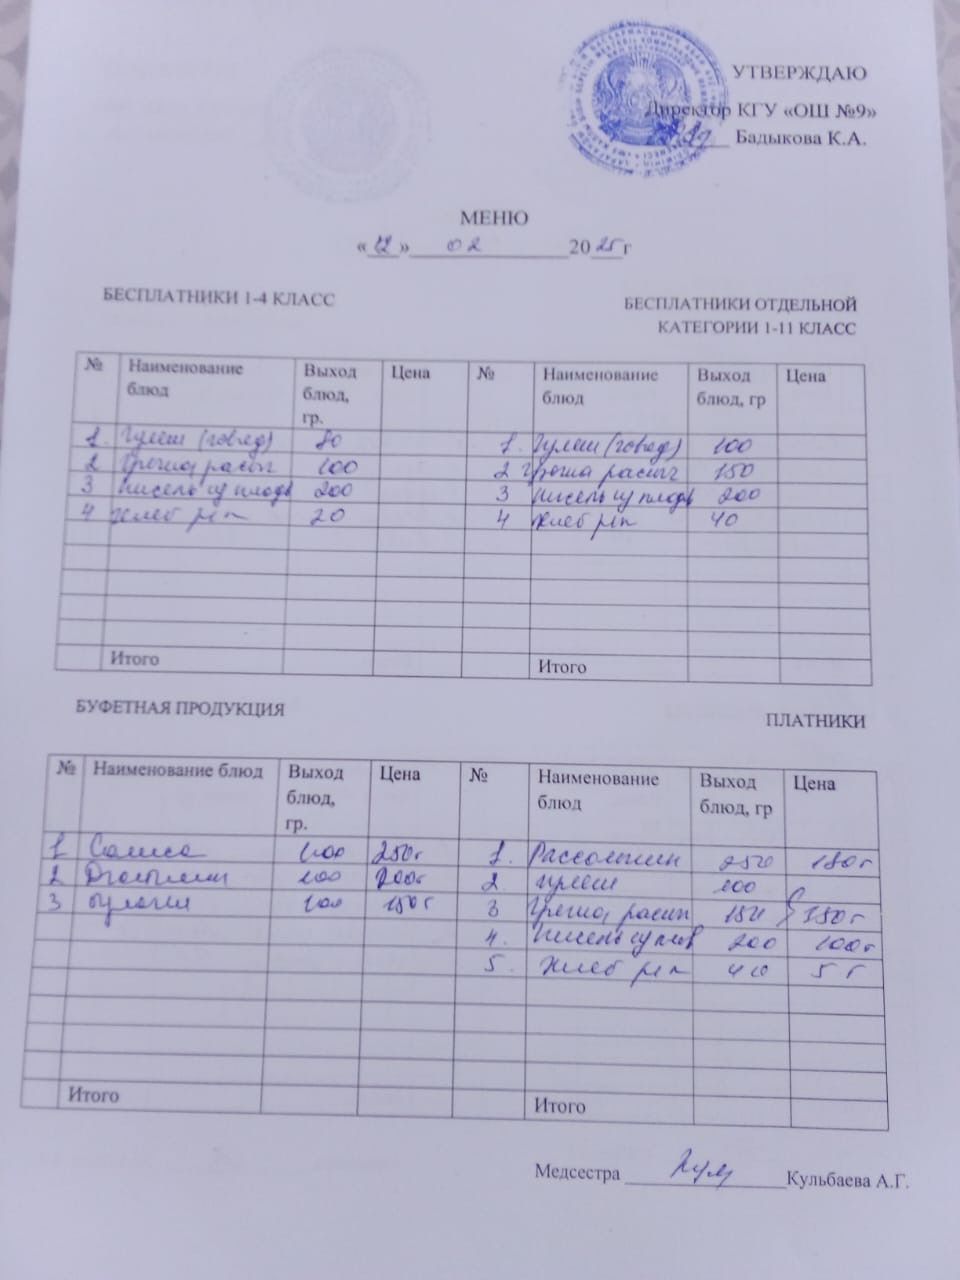 УТВЕРЖДАЮ
Директор КГУ «ОШ №9»
Бадыкова К.А.
МЕНЮ
«12» 02 2025г
БЕСПЛАТНИКИ 1-4 КЛАСС
БЕСПЛАТНИКИ ОТДЕЛЬНОЙ КАТЕГОРИИ 1-11 КЛАСС
№ Наименование блюд Выход блюд, гр. Цена № Наименование блюд Выход блюд, гр Цена
1. Гуляш (говяд) 80 1. Гуляш (говяд) 100
2 Гречка рассып 100 2 Гречка рассып 150
3 Кисель из плодов 200 3 Кисель из плодов 200
4 Хлеб рп 20 4 Хлеб рп 40
Итого Итого
БУФЕТНАЯ ПРОДУКЦИЯ
ПЛАТНИКИ
№ Наименование блюд Выход блюд, гр. Цена № Наименование блюд Выход блюд, гр Цена
1 Самса 100 250г 1. Рассольник 250 180г
2 100 200г 2. гуляш 100
3 100 150г 3 Гречка рассып 150 350г
4. Кисель из плодов 200 100г
5. Хлеб рп 40 5г
Итого Итого
Медсестра Кульбаева А.Г.